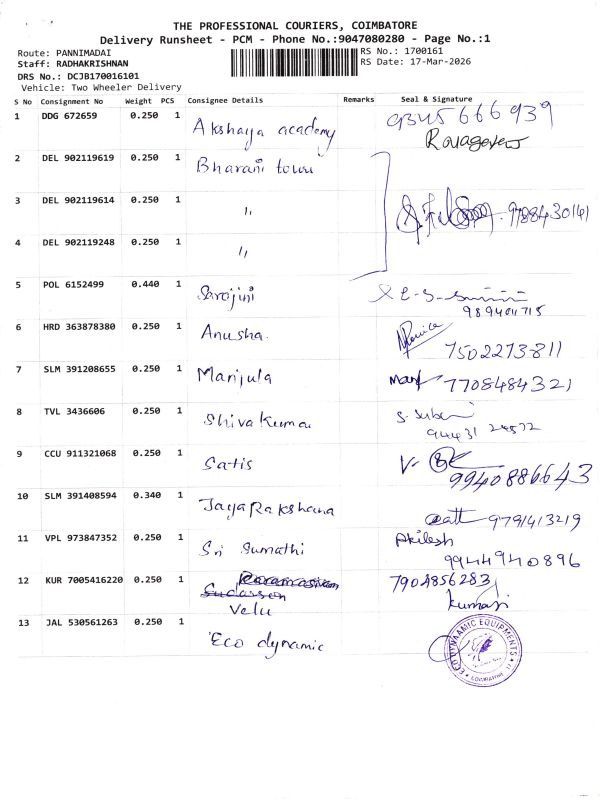 THE PROFESSIONAL COURIERS, COIMBATORE
Delivery Runsheet - PCM - Phone No.:9047080280 - Page No.:1
Route: PANNIMADAI
Staff: RADHAKRISHNAN
DRS No.: DCJB170016101
Vehicle: Two Wheeler Delivery
RS No.: 1700161
RS Date: 17-Mar-2026
S No Consignment No Weight PCS Consignee Details Remarks Seal & Signature
1 DDG 672659 0.250 1 Akshaya academy 9345666939
2 DEL 902119619 0.250 1 Bharani town
3 DEL 902119614 0.250 1 " 9788430141
4 DEL 902119248 0.250 1 "
5 POL 6152499 0.440 1 Sarojini
9894011715
6 HRD 363878380 0.250 1 Anusha.
7502273811
7 SLM 391208655 0.250 1 Manjula 7708484321
8 TVL 3436606 0.250 1 Shiva Kumar
94431 24572
9 CCU 911321068 0.250 1 Satis
9940886643
10 SLM 391408594 0.340 1 Jaya Rakshana
9791413219
11 VPL 973847352 0.250 1 Sri Sumathi Akilesh
9944940896
12 KUR 7005416220 0.250 1 Velu 7904856283
Kumari
13 JAL 530561263 0.250 1 Eco dynamic
ECO DYNAAMIC EQUIPMENTS
COIMBATORE